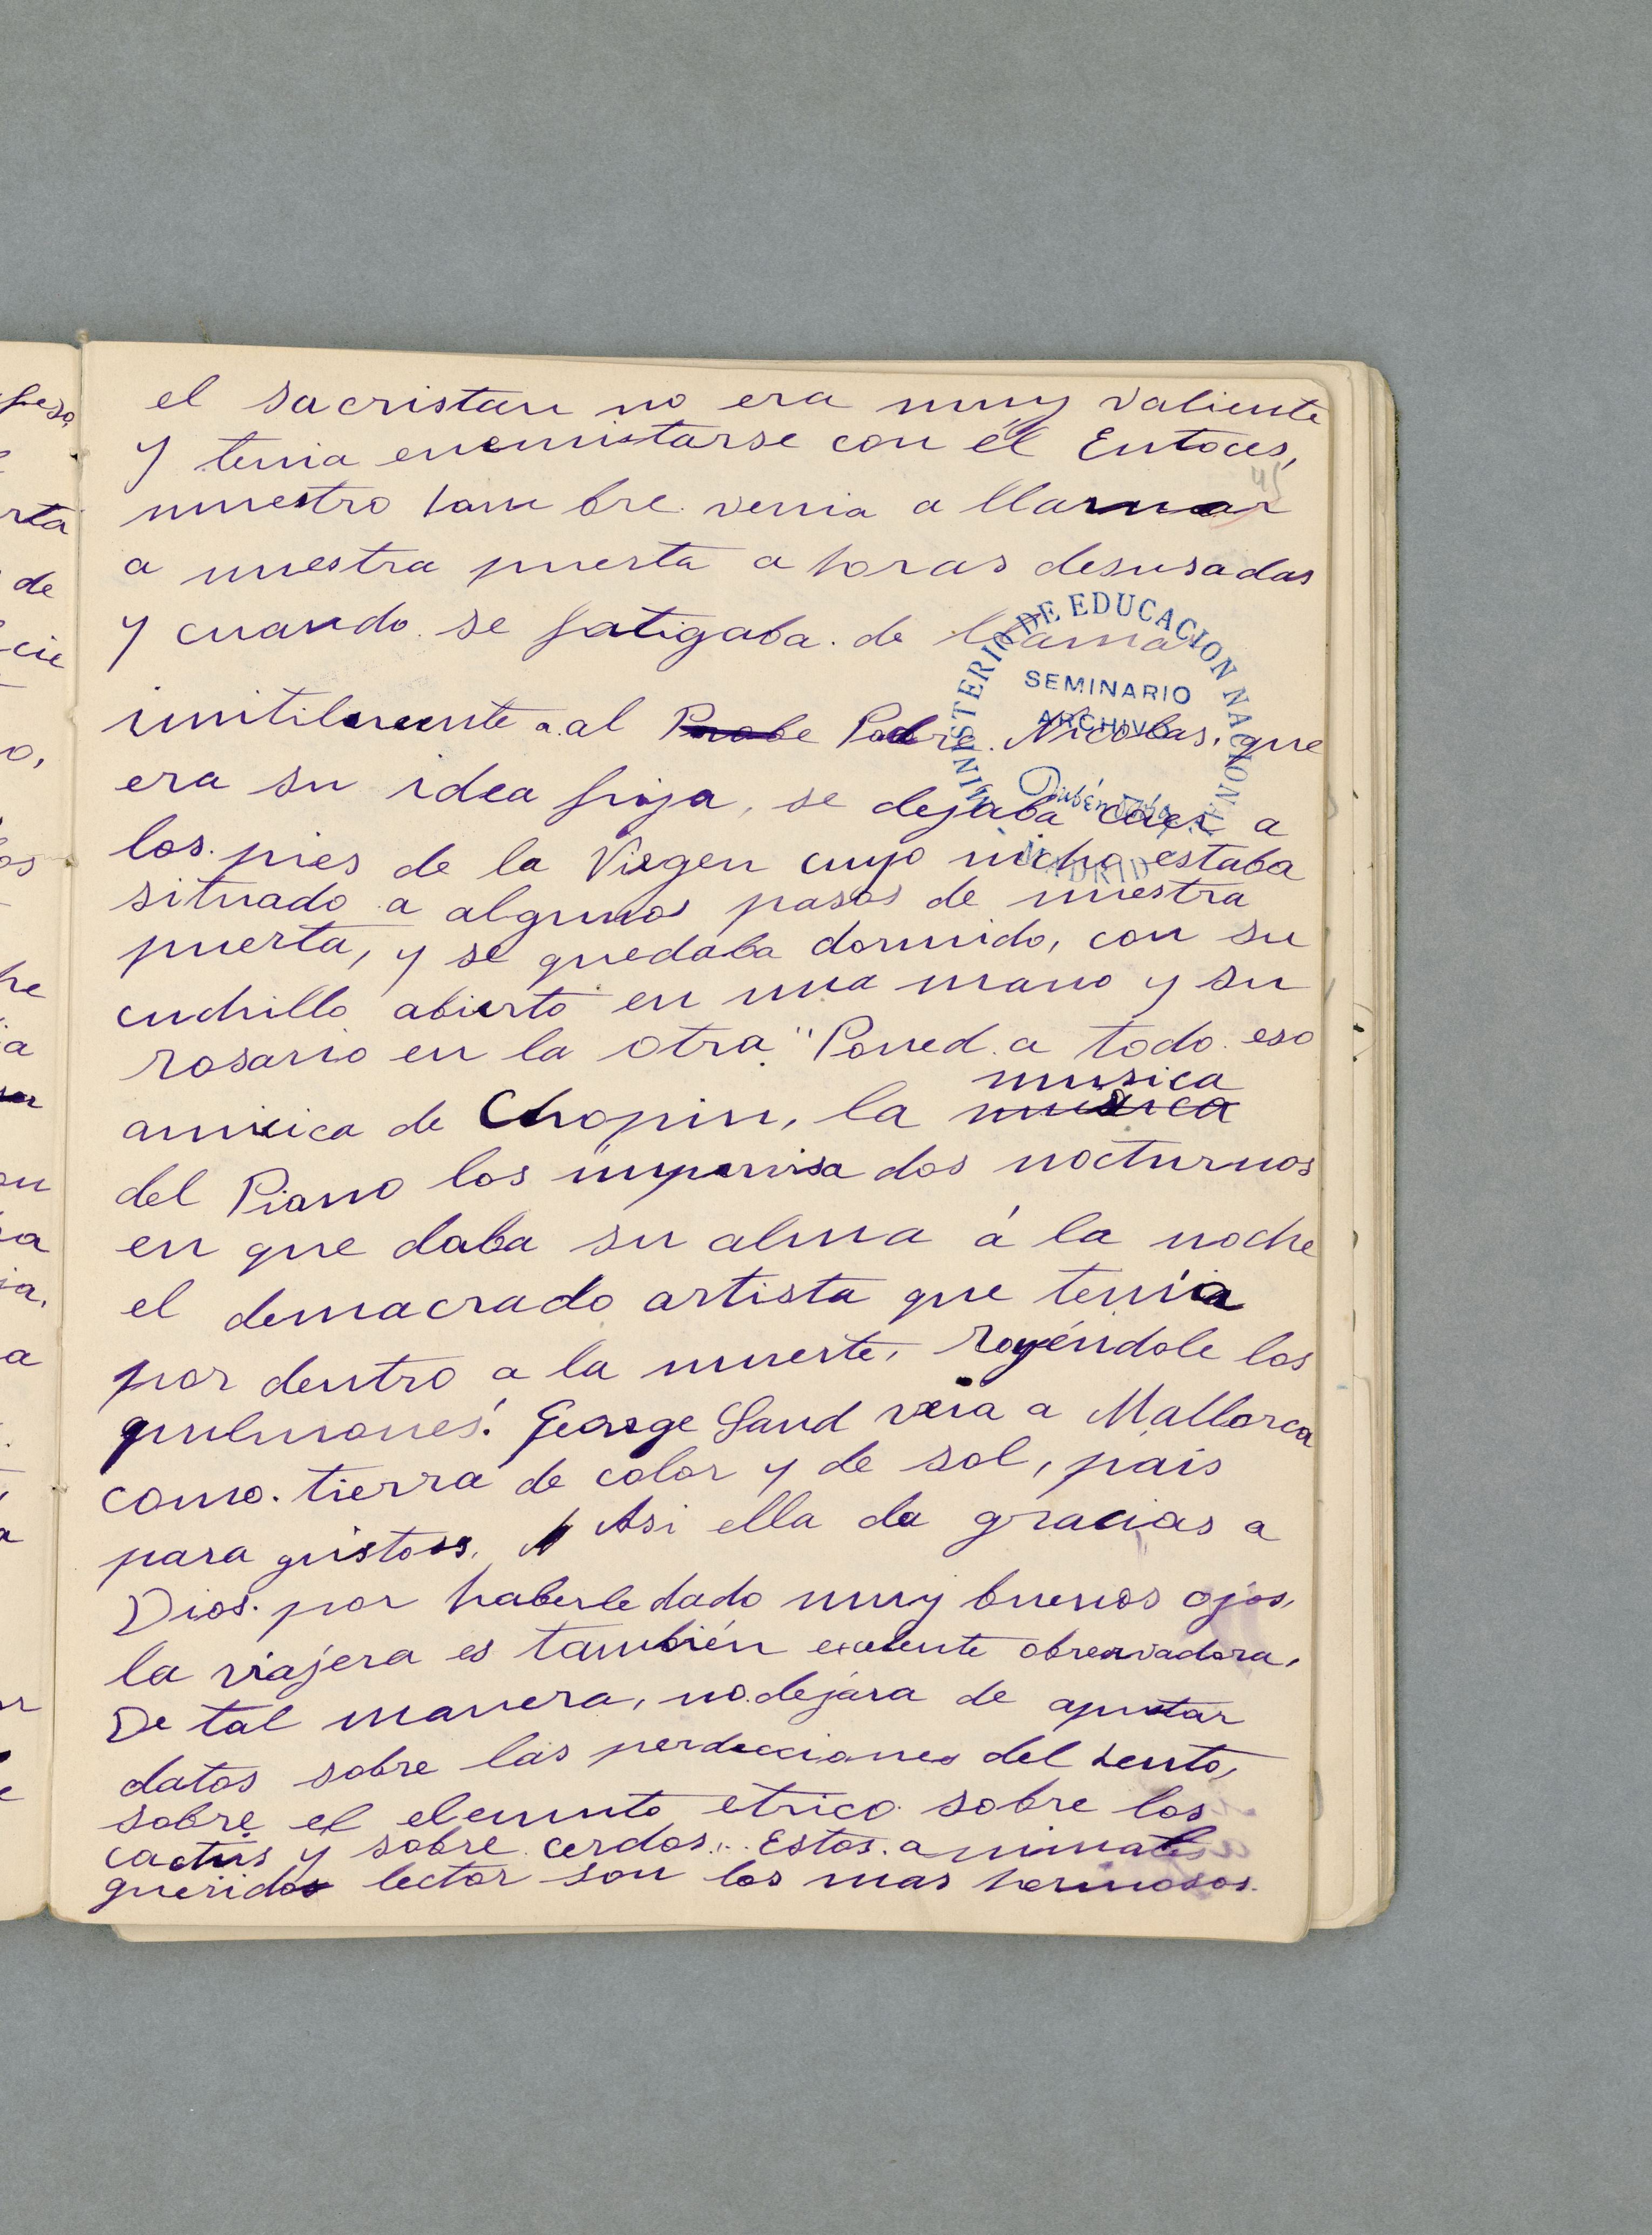 el sacristan no era muy valiente
y temia enemistarse con él Entoces,
41
nuestro hombre venia a llamar
a nuestra puerta a horas desusadas
y cuando se fatigaba de llamar
inutilmente a al Padre Nicolas, que
era su idea fija, se dejaba caer a
los pies de la Virgen cuyo nicho estaba
situado a algunos pasos de nuestra
puerta, y se quedaba dormido, con su
cuchillo abierto en una mano y su
rosario en la otra" Poned a todo eso
musica
animica de Chopin, la musica
del Piano los improvisados nocturnos
en que daba su alma á la noche
el demacrado artista que tenia
por dentro a la muerte, royéndole los
pulmones! George Sand veia a Mallorca
como tierra de color y de sol, pais
para gustos. Asi ella da gracias a
Dios por haberle dado muy buenos ojos,
la viajera es también exelente obrervadora,
De tal manera, no dejara de apuntar
datos sobre las perdecciones del
sobre el elemento etrico sobre los
cactus y sobre cerdos... Estos animales
querido lector son los mas hermosos.
MINISTERIO DE EDUCACION NACIONAL
SEMINARIO
ARCHIVO
Rubén Darío
MADRID